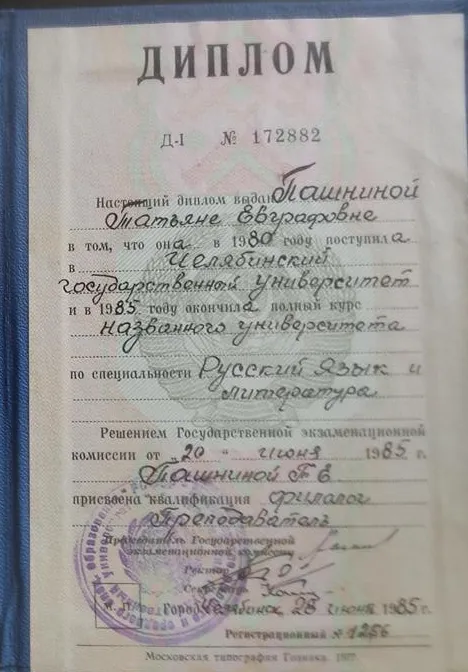 ДИПЛОМ
Д-I № 172882
Настоящий диплом выдан Пашниной
Татьяне Евграфовне
в том, что она в 1980 году поступила
в Челябинский
государственный университет
и в 1985 году окончила полный курс
названного университета
по специальности Русский язык и
литература
Решением Государственной экзаменационной
комиссии от „20 " июня 1985 г.
Пашниной Т Е
присвоена квалификация филолог
Преподаватель
Председатель Государственной
экзаменационной комиссии
Ректор
Секретарь
Город Челябинск, 28 июня 1985 г.
Регистрационный № 1256
Московская типография Гознака.